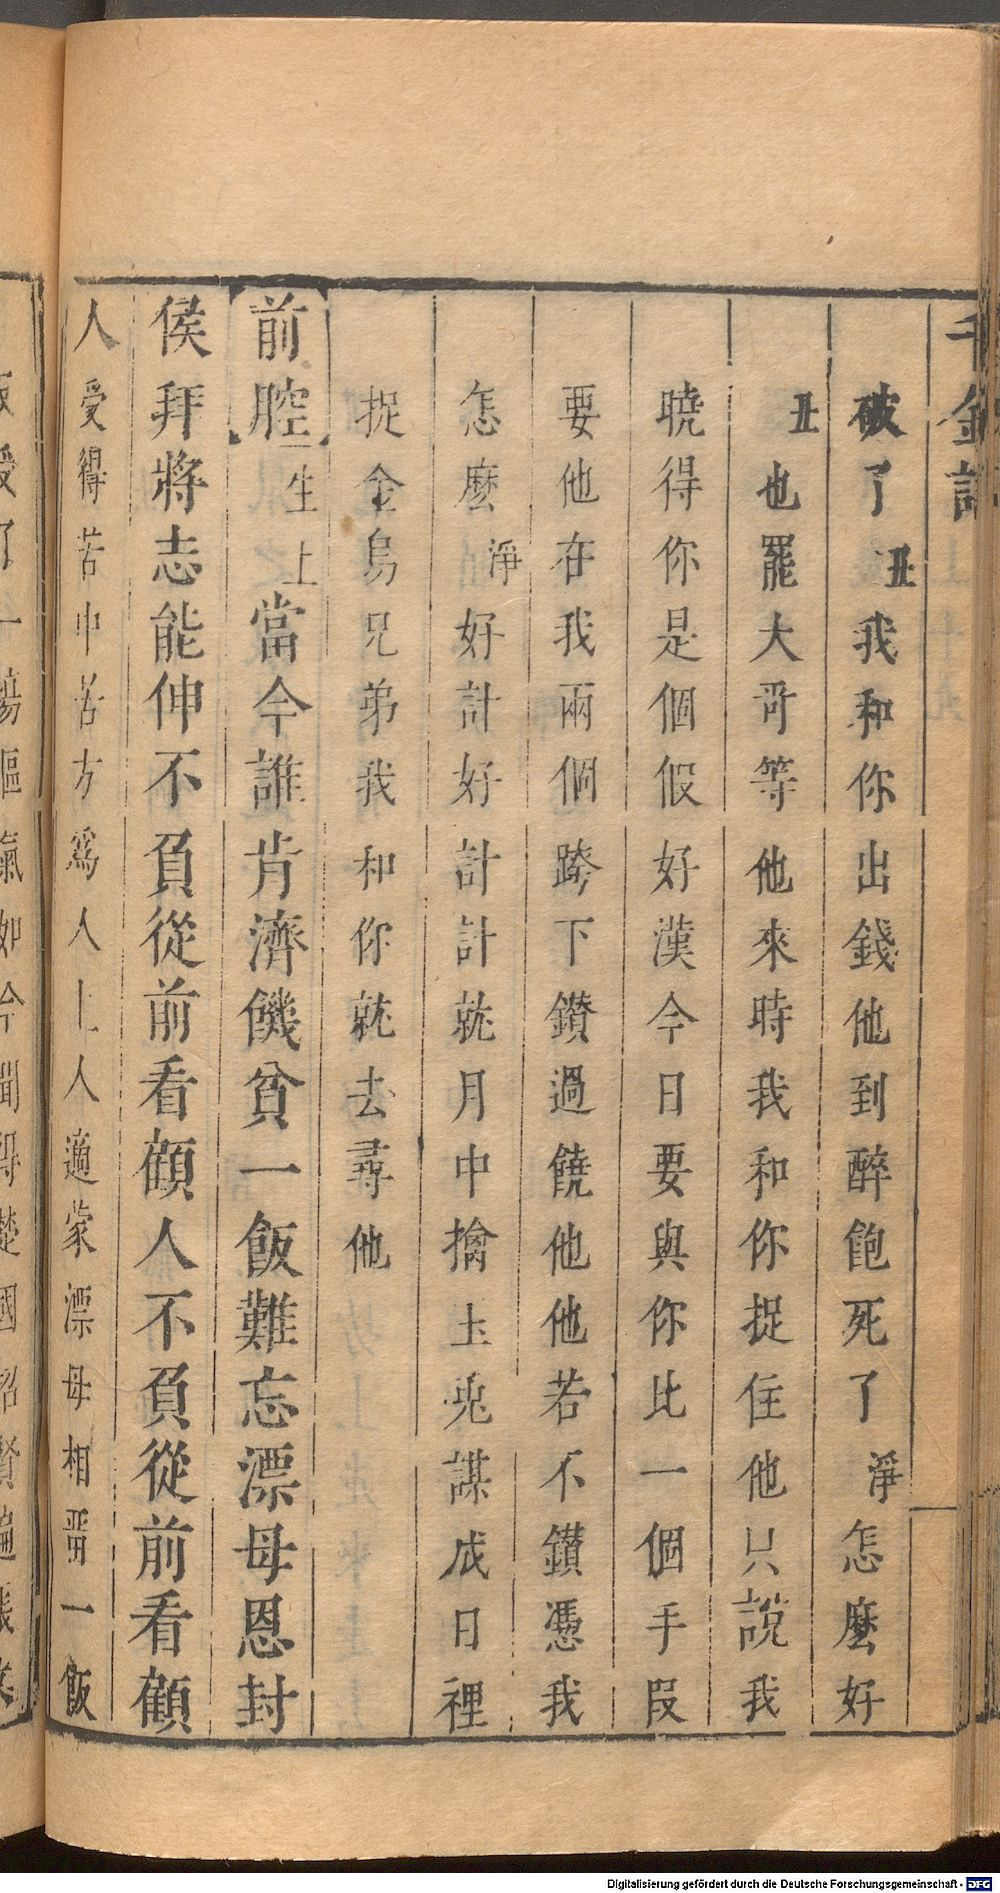 千金記
破了丑我和你出錢他到醉飽死了淨怎麽好
丑也罷大哥等他來時我和你捉住他只說我
曉得你是個假好漢今日要與你比一個手段
要他在我兩個跨下鑽過饒他他若不鑽憑我
怎麽淨好計好計計就月中擒玉兎謀成日裡
捉金烏兄弟我和你就去尋他
前腔生上當今誰肯濟饑貧一飯難忘漂母恩封
侯拜將志能伸不負從前看顧人不負從前看顧
人受得苦中苦方爲人上人適蒙漂母相留一飯
Digitalisierung gefördert durch die Deutsche Forschungsgemeinschaft - DFG